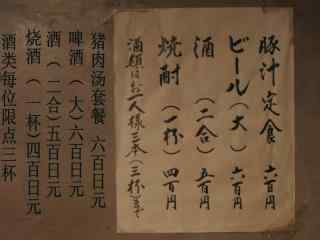 豚汁定食 六百円
ビール(大) 六百円
酒(二合) 五百円
焼酎(一杯) 四百円
酒類はお一人様三本(三杯)まで
猪肉汤套餐 六百日元
啤酒(大)六百日元
酒(二合)五百日元
烧酒(一杯)四百日元
酒类每位限点三杯